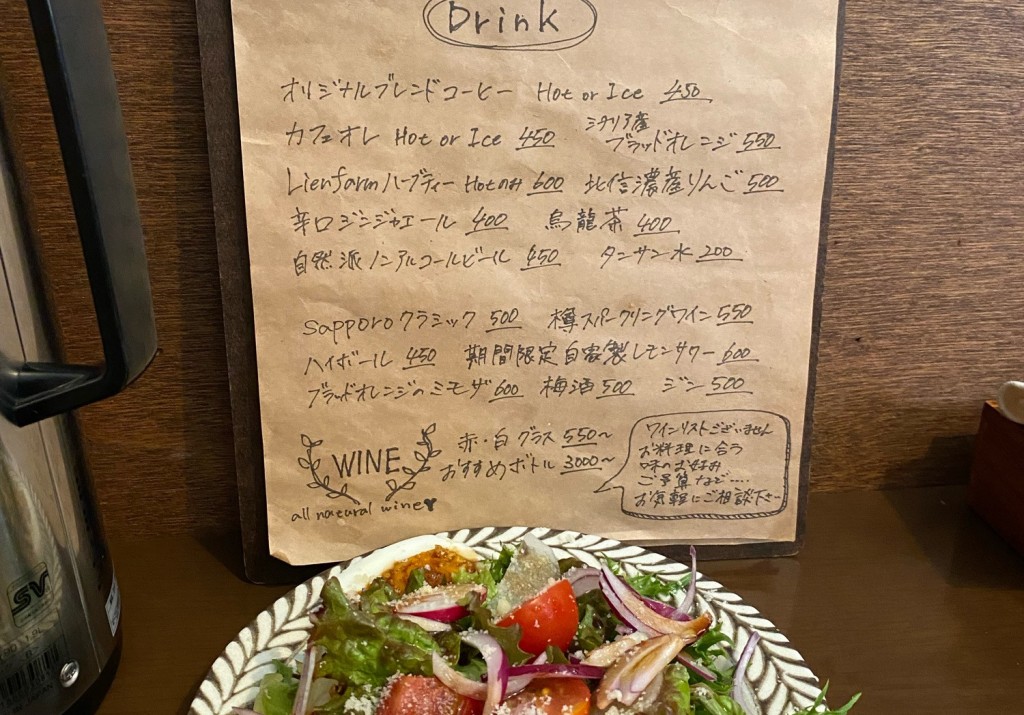 Drink
オリジナルブレンドコーヒー Hot or Ice 450
カフェオレ Hot or Ice 450 シチリア産ブラッドオレンジ 550
Lienfarmハーブティー Hotのみ 600 北信濃産りんご 500
辛口ジンジャエール 400 烏龍茶 400
自然派ノンアルコールビール 450 タンサン水 200
Sapporoクラミック 500 樽スパークリングワイン 550
ハイボール 450 期間限定自家製レモンサワー 600
ブラッドオレンジのミモザ 600 梅酒 500 ジン 500
WINE
all natural wine
赤・白 グラス 550〜
おすすめボトル 3000〜
ワインリストございません
お料理に合う
味のお好み
ご予算など....
お気軽にご相談下さい
SV